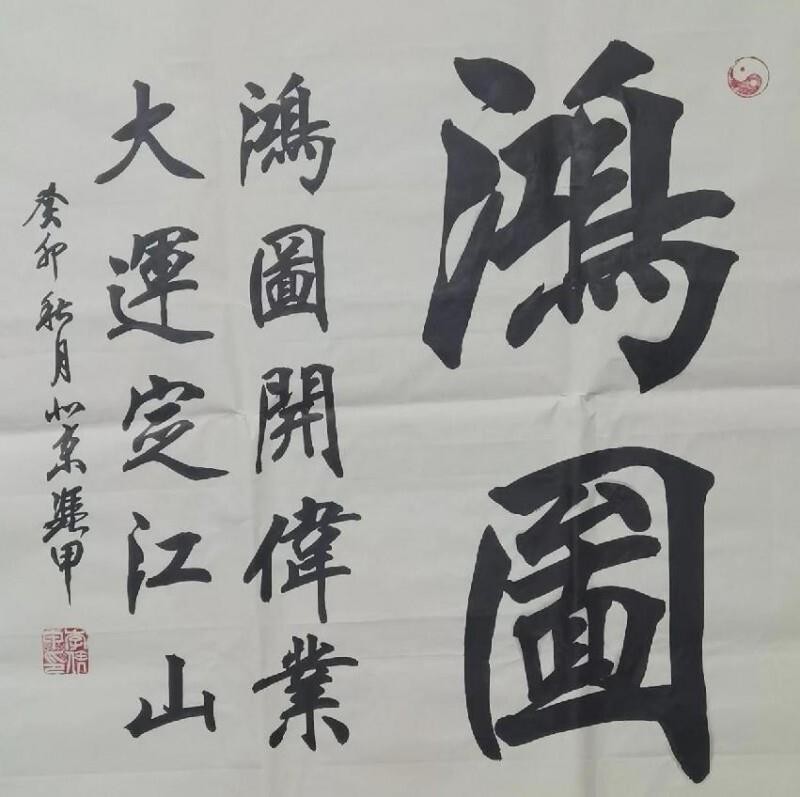 鴻圖
鴻圖開偉業
大運定江山
癸卯秋月北京
甲